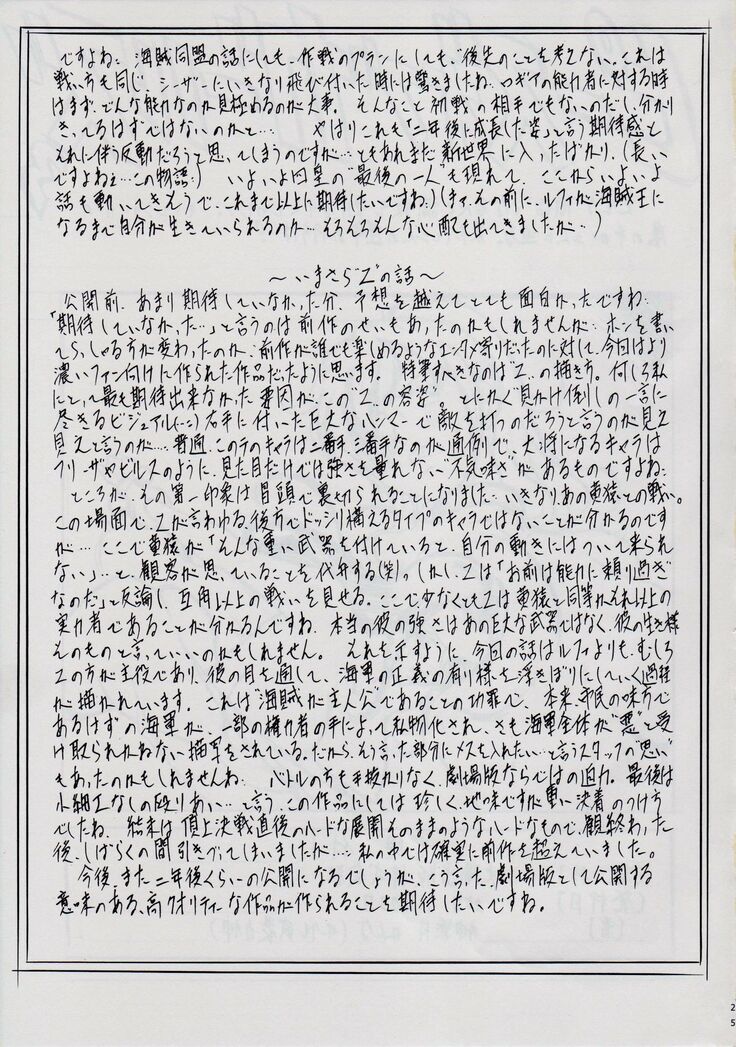 ですよね: 海賊同盟の話にしても、作戦のプランにしても、後先のことを考えない。これは
戦い方も同じ、シーザーにいきなり飛び付いた時には驚きましたね: ロギアの能力者に対する時
はまず、どんな能力なのか見極めるのが大事。そんなこと初戦の相手でもないのだし、分かり
きってるはずではないのかと… やはりこれも「二年後に成長した姿」と言う期待感と
それに伴う反動だろうと思ってしまうのですが…ともあれまだ新世界に入ったばかり、(長い
ですよねェ…この物語:) いよいよ四皇の“最後の一人”も現れて、ここからいよいよ
話も動いてきそうで、これまで以上に期待したいですね:)(まァ、その前に、ルフィが海賊王に
なるまで自分が生きていられるのか…そろそろそんな心配も出てきましたが…)
〜いまさら“Z”の話〜
公開前、あまり期待していなかった分、予想を越えてとても面白かったですね:
「期待していなかった…」と言うのは前作のせいもあったのかもしれませんが… ホンを書い
てらっしゃる方が変わったのか、前作が誰でも楽しめるようなエンタメ寄りだったのに対して、今回はより
濃いファン向けに作られた作品だったように思います。特筆すべきなのは“Z”の描き方。何しろ私
にとって最も期待出来なかった要因が、この“Z”の容姿”。とにかく“見かけ倒し”の一言に
尽きるビジュアル(:;) 右手に付いた巨大なハンマーで敵を打つのだろうと言うのが見え
見えと言うのが…: 普通、このテのキャラは二番手、三番手なのが通例で、大将になるキャラは
フリーザやビルスのように、見た目だけでは強さを量れない“不気味さ”があるものですよね:
ところが、その第一印象は冒頭で裏切られることになりました… いきなり、あの黄猿との戦い。
この場面で、Zが言わゆる、後方でドッシリ構えるタイプのキャラではないことが分かるのです
が… ここで黄猿が「そんな重い武器を付けていると、自分の動きにはついて来られ
ない」…と、観客が思っていることを代弁する(笑)。しかし、Zは「お前は能力に頼り過ぎ
なのだ」と反論し、互角以上の戦いを見せる。ここで少なくともZは黄猿と同等かそれ以上の
実力者であることが分かるんですね: 本当の彼の強さはあの巨大な武器ではなく、彼の生き様
そのものと言っていいのかもしれません。それを示すように、今回の話はルフィよりも、むしろ
Zの方が主役であり、彼の目を通して、海軍の正義の有り様を浮きぼりにしていく過程
が描かれています。これは“海賊が主人公”であることの功罪で、本来、市民の味方で
あるはずの海軍が、一部の権力者の手によって私物化され、さも海軍全体が“悪”と受
け取られかねない描写をされている。だから、そう言った部分にメスを入れたい…と言うスタッフの“思い”
もあったのかもしれませんね: バトルの方も手抜かりなく、劇場版ならではの迫力。最後は
小細工なしの殴りあい…と言う、この作品にしては珍しく、地味ですが重い決着のつけ方
でしたね: 結末は頂上決戦直後のハードな展開そのままのようなハードなもので、観終わった
後、しばらくの間引きづってしまいましたが…: 私の中では確実に前作を超えていました。
今後、また二年後くらいの公開になるでしょうが、こう言った、劇場版として公開する
意味のある、高クオリティーな作品が作られることを期待したいですね。
25